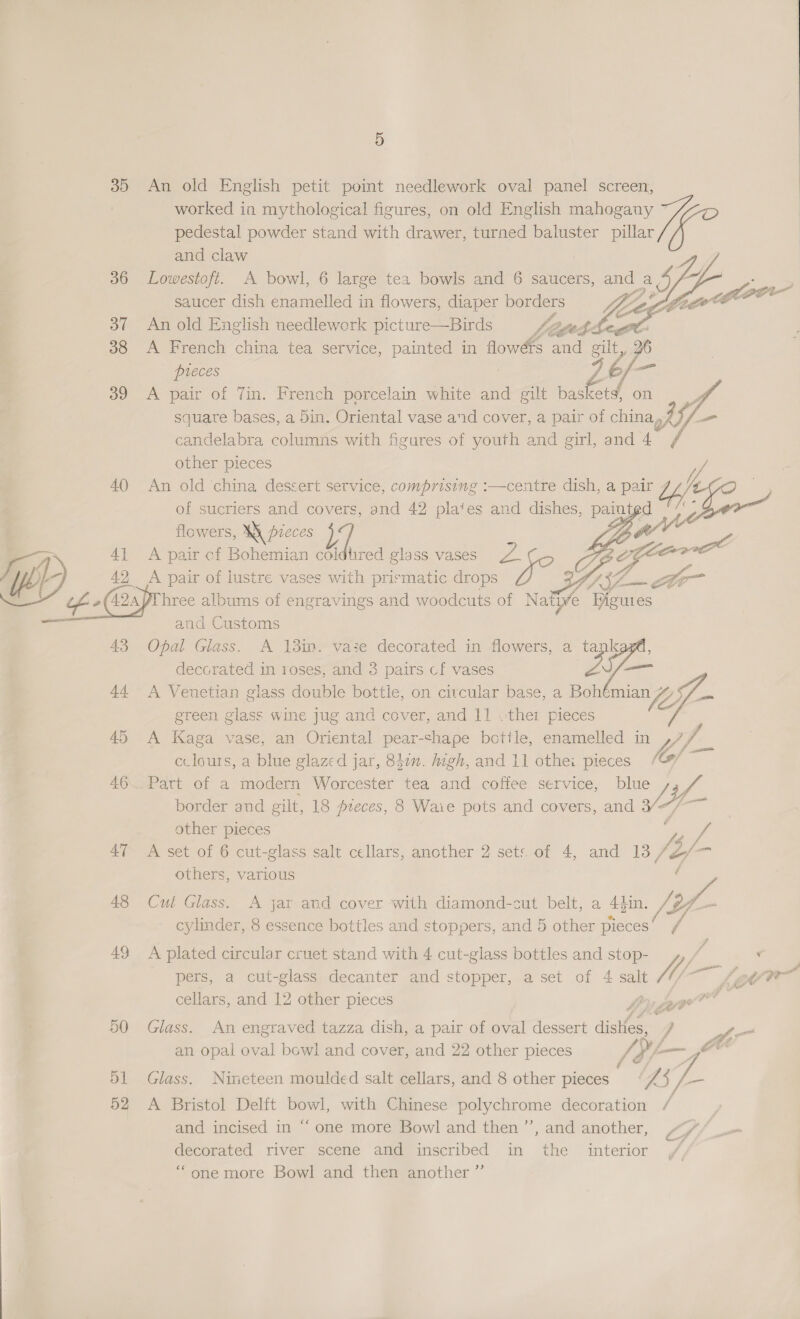 5
35 An old English petit point needlework oval panel screen,
worked in mythological figures, on old English mahogany
pedestal powder stand with drawer, turned baluster pillar
and claw
36 Lowestoft. A bowl, 6 large tea bowls and 6 saucers, and a
saucer dish enamelled in flowers, diaper borders
37 An old English needlework picture—Birds
38 A French china tea service, painted in flowers and gilt, 36
pieces
39 A pair of 7in. French porcelain white and gilt baskets, on
square bases, a 5in. Oriental vase and cover, a pair of china
candelabra columns with figures of youth and girl, and 4
other pieces
40 An old china dessert service, comprising :—centre dish, a pair
of sucriers and covers, and 42 plates and dishes, painted
flowers, pieces
41 A pair of Bohemian coloured glass vases
42 A pair of lustre vases with prismatic drops
42A Three albums of engravings and woodcuts of Native Figures
and Customs
43 Opal Glass. A 13in. vase decorated in flowers, a tankard,
decorated in roses, and 3 pairs of vases
44 A Venetian glass double bottle, on circular base, a Bohemian
green glass wine jug and cover, and 11 other pieces
45 A Kaga vase, an Oriental pear-shape bottle, enamelled in
colours, a blue glazed jar, 8½in. high, and 11 other pieces
46 Part of a modern Worcester tea and coffee service, blue
border and gilt, 18 pieces, 8 Ware pots and covers, and 3
other pieces
47 A set of 6 cut-glass salt cellars, another 2 sets of 4, and 13
others, various
48 Cut Glass. A jar and cover with diamond-cut belt, a 4½in.
cylinder, 8 essence bottles and stoppers, and 5 other pieces
49 A plated circular cruet stand with 4 cut-glass bottles and stop-
pers, a cut-glass decanter and stopper, a set of 4 salt
cellars, and 12 other pieces
50 Glass. An engraved tazza dish, a pair of oval dessert dishes,
an opal oval bowl and cover, and 22 other pieces
51 Glass. Nineteen moulded salt cellars, and 8 other pieces
52 A Bristol Delft bowl, with Chinese polychrome decoration
and incised in “ one more Bowl and then ”, and another,
decorated river scene and inscribed in the interior
“ one more Bowl and then another ”